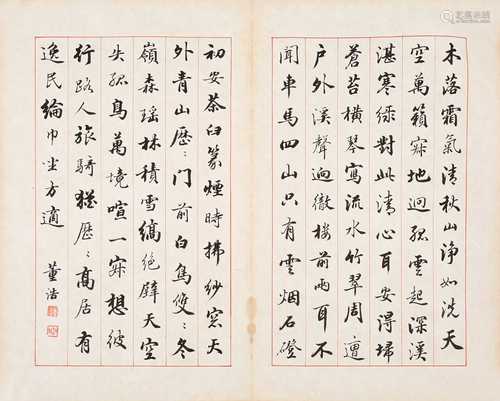 木落霜氣清秋山淨如洗天
空萬籟寂地迥孤雲起深溪
湛寒綠對此清心耳安得掃
蒼苔橫琴寫流水竹翠周遭
戶外溪聲迴徹樓前兩耳不
聞車馬四山只有雲烟石磴
初安茶臼篆煙時拂紗窓天
外青山歷：門前白鳥雙：冬
嶺森瑤林積雪縞絕壁天空
失孤鳥萬境喧一寂想彼
行路人旅騎猶歷：高居有
逸民綸巾坐方適
董浩